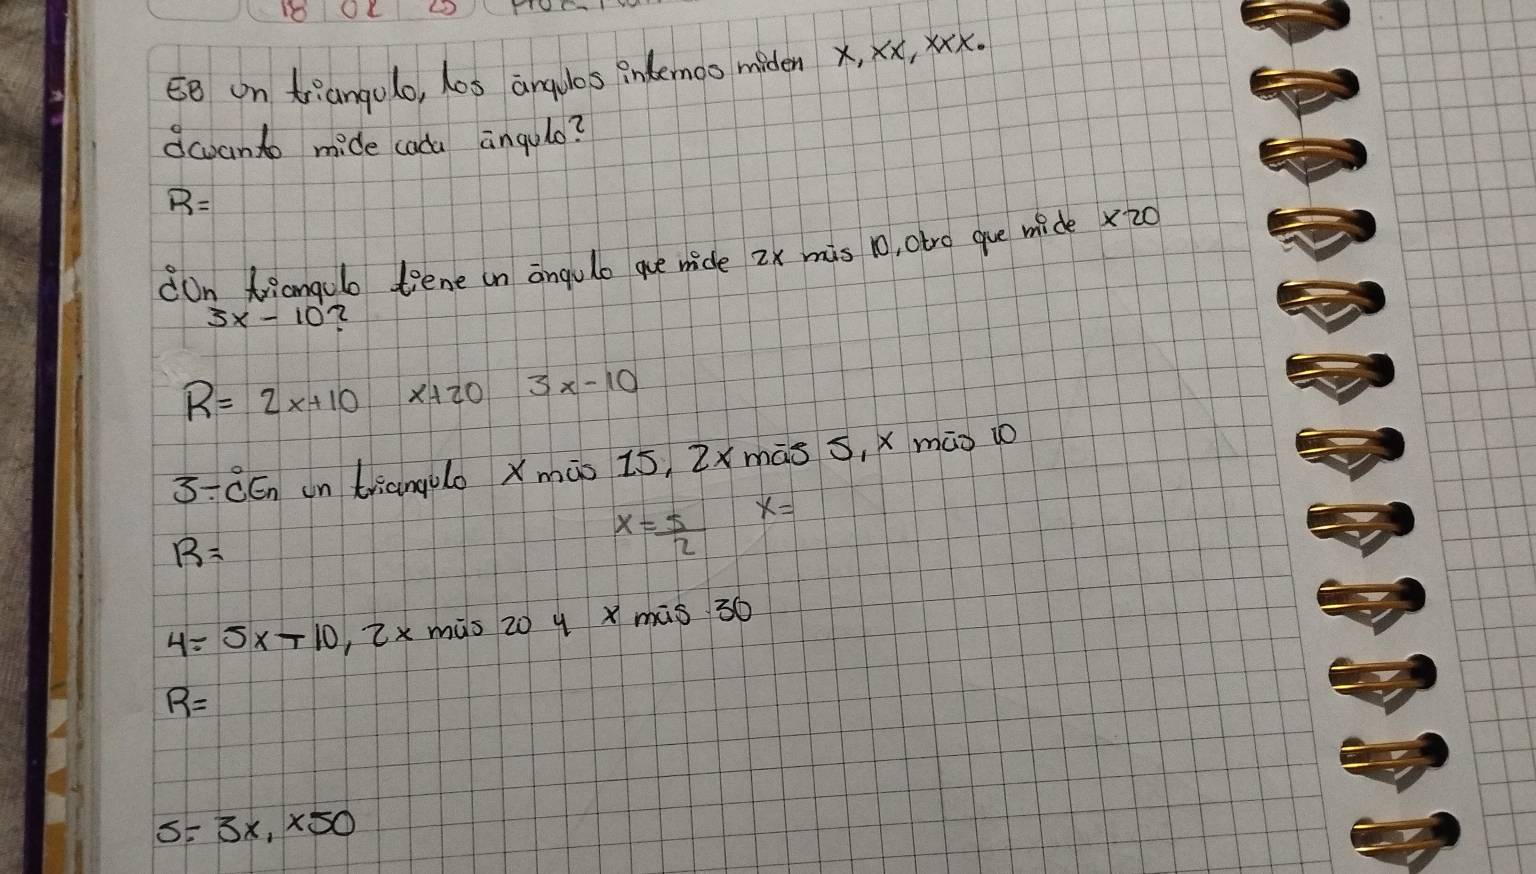 18 02 25
EB un triangulo, los ángulos internos miden x, xx, xxx.
¿cuanto mide cada ángulo?
R=
¿Un triangulo tiene un ángulo que mide 2x más 10, Otro que mide x20
3x-10?
R= 2x+10 x+20 3x-10
3-¿En un triangulo x más 15, 2x más 5, x más 10
x=5/2 x=
R=
4= 5x-10, 2x más 20 y x más 30
R=
5= 3x, x50